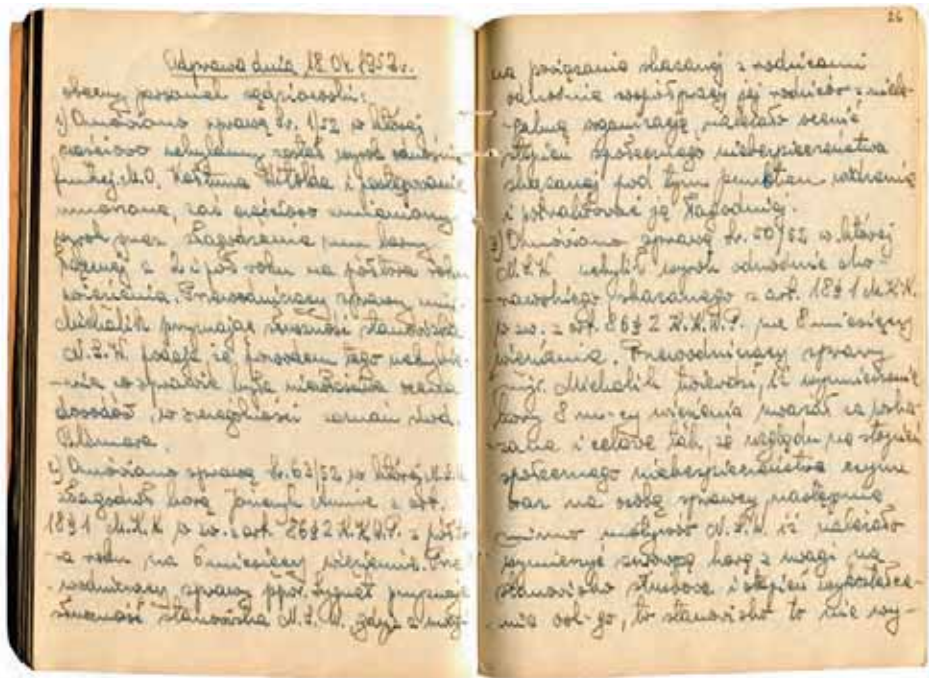 Odprawa dnia 18.IX.1952 r.
obecny personel sędziowski:
1) Omówiono sprawę Sr. 1/52 w której
częściowo uchylony został wyrok odnośnie
funkcj. M.O. Witolda i postępowanie
umorzone, zaś częściowo zmieniony
wyrok przez złagodzenie kary
z 2 i pół roku na półtora roku
więzienia. Przewodniczący sprawy mjr.
Michalik przyznając słuszność stanowiska
N.S.W. podaje że powodem tego uchyle-
-nia w sprawie była niewłaściwa ocena
dowodów, w szczególności zeznań świad.
2) Omówiono sprawę Sr. 63/52 w której N.S.W.
złagodził karę Annie z art.
18§1 M.K.K. w zw. z art. 86§2 K.K.W.P. z półto-
-ra roku na 6 miesięcy więzienia. Prze-
-wodniczący sprawy ppor. przyznaje
słuszność stanowiska N.S.W., gdyż z uwagi
26
na powiązania skazanej z rodzicami
odnośnie współpracy jej rodziców z niele-
-galną organizacją, należało ocenić
stopień społecznego niebezpieczeństwa
skazanej pod tym punktem widzenia
i potraktować ją łagodniej.
3) Omówiono sprawę Sr. 50/52 w której
N.S.W. uchylił wyrok odnośnie
skazanego z art. 18§1 M.K.K.
w zw. z art. 86§2 K.K.W.P. na 8 miesięcy
więzienia. Przewodniczący sprawy
mjr. Michalik twierdzi, iż wymierzenie
kary 8 m-cy więzienia uważał za wska-
-zane i celowe tak, ze względu na stopień
społecznego niebezpieczeństwa czynu
oraz na osobę sprawcy, następnie
mimo N.S.W. iż należało
wymierzyć surowszą karę z uwagi na
stanowisko służbowe i stopień wykształce-
-nia osk-go, to stanowisko to nie wy-